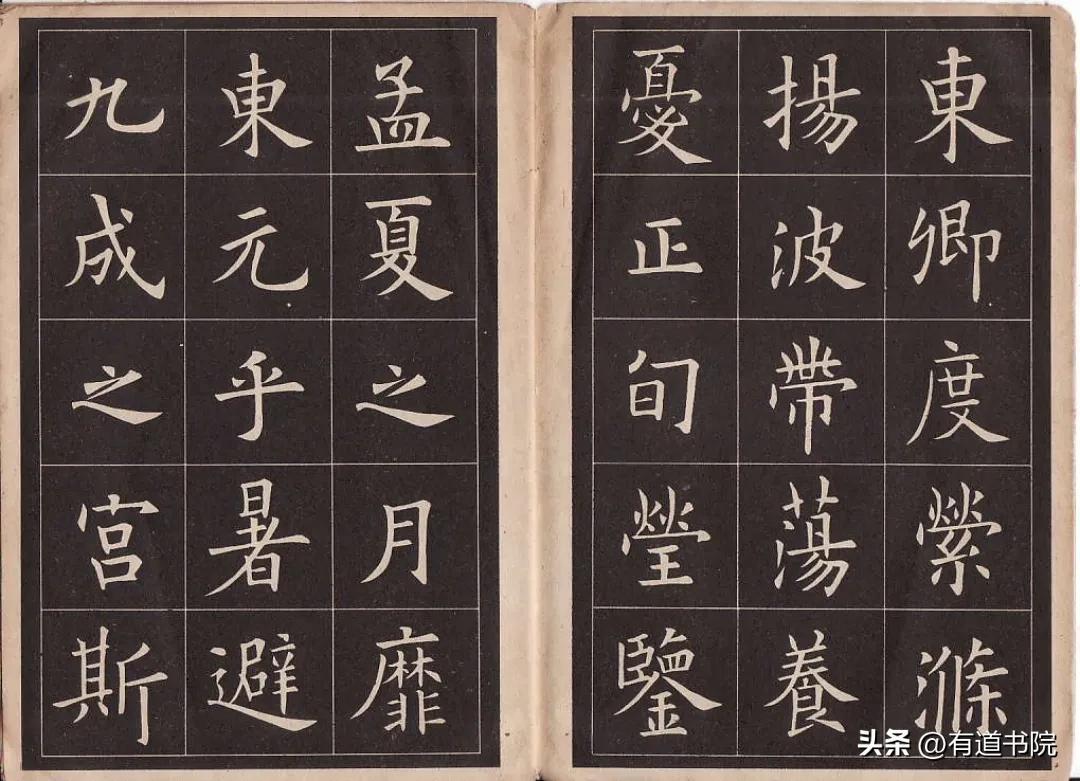 東卿度縈滌
揚波帶蕩養
憂正旬瑩鑒
孟夏之月靡
東元乎暑避
九成之宮斯
头条 @有道书院